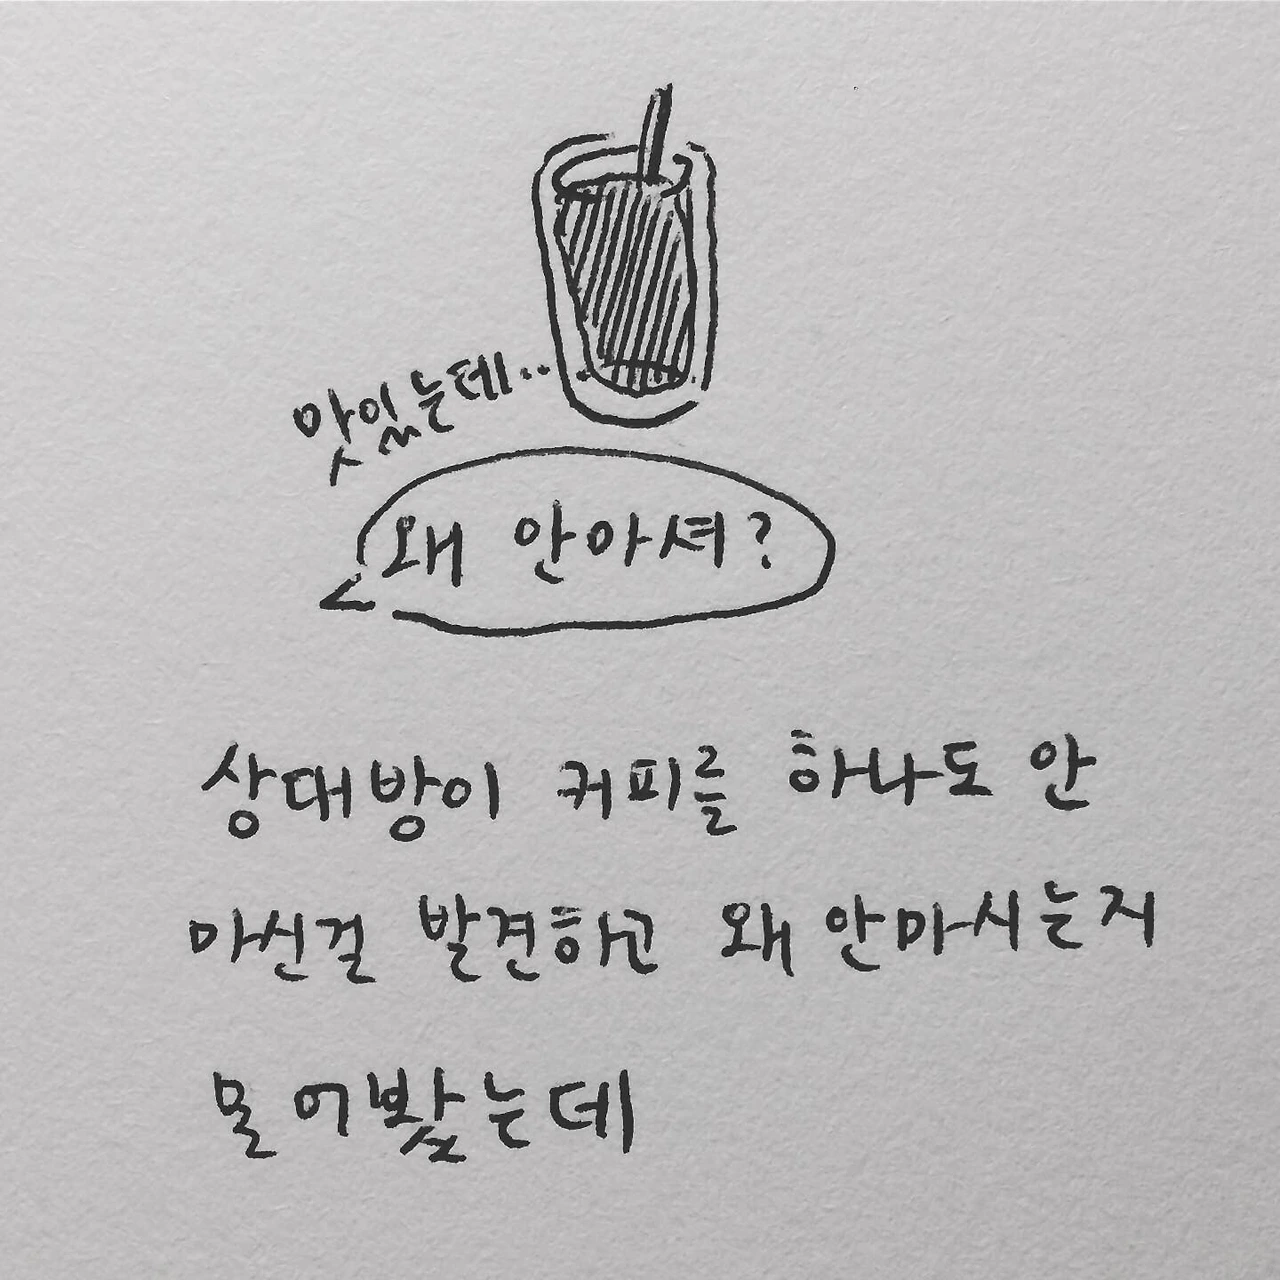 맛있는데..
왜 안마셔?
상대방이 커피를 하나도 안
마신걸 발견하고 왜 안마시는지
물어봤는데